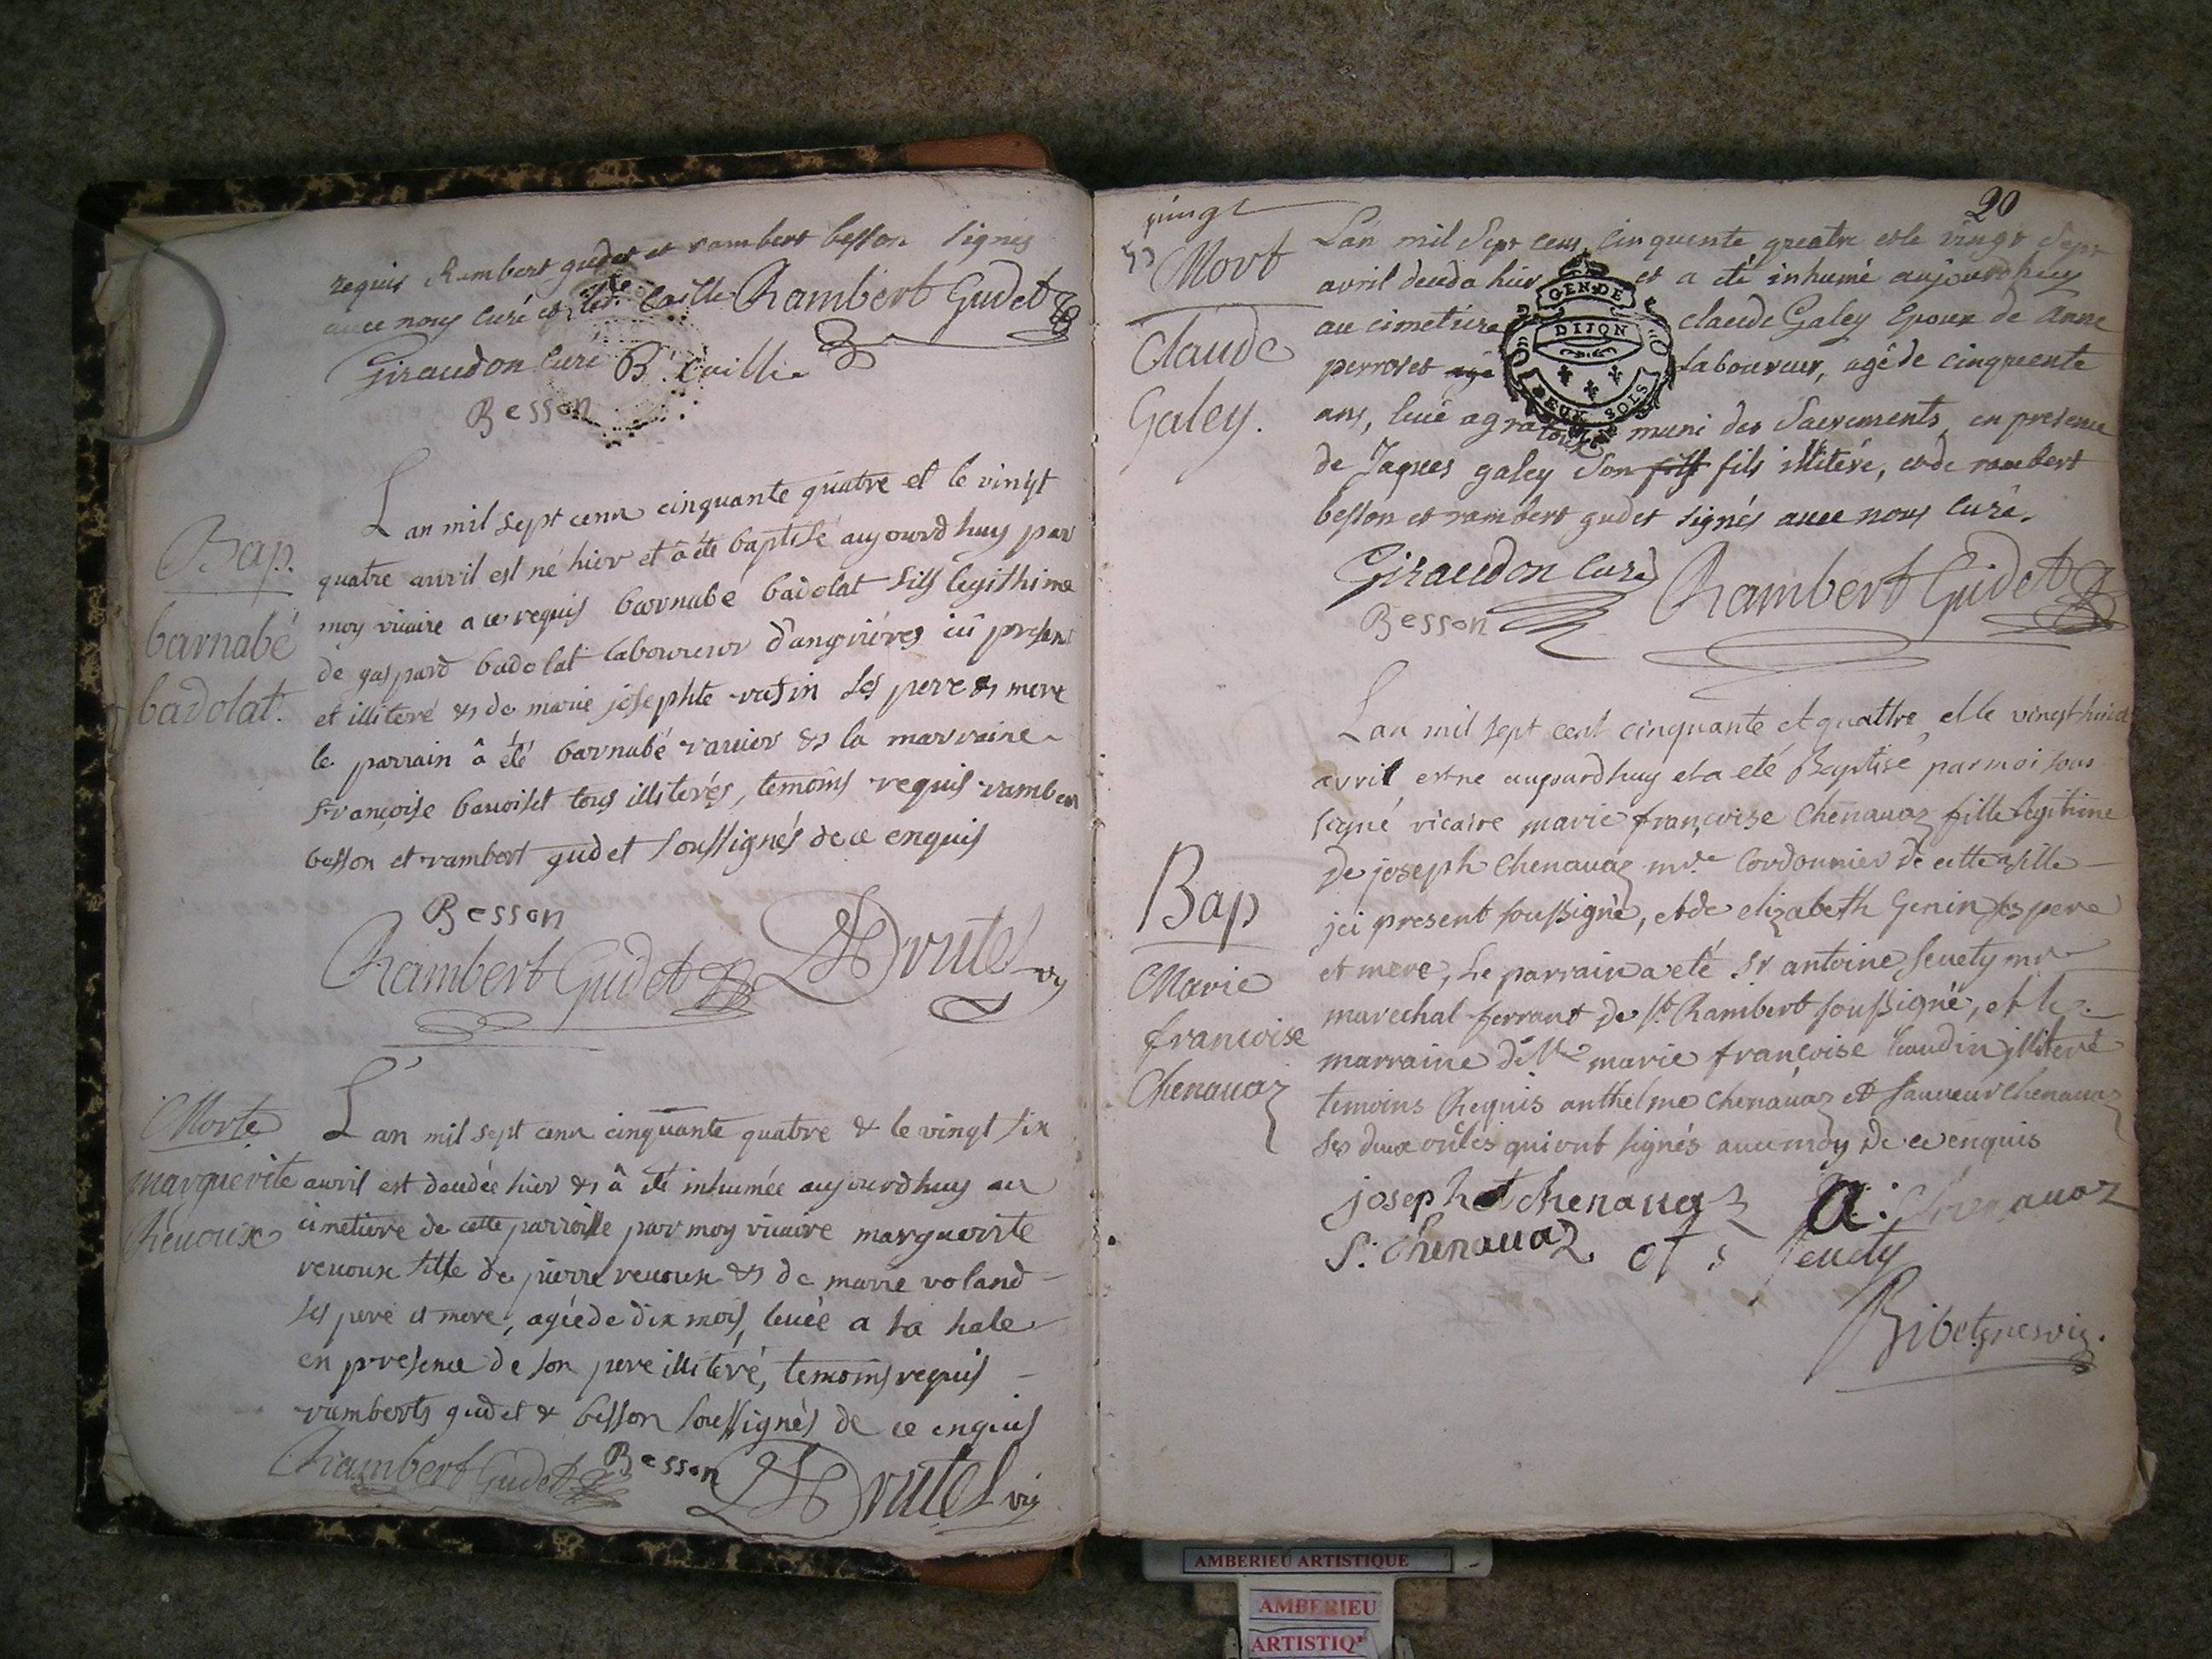 requis Rambert gudet et rambert besson signés
avec nous curé et caille Rambert Gudet
Giraudon curé B. Caille
Besson
Bap.
barnabé
badolat.
Lan mil sept cent cinquante quatre et le vingt
quatre avril est né hier et â été baptisé aujourdhuy par
moy vicaire a ce requis barnabé badolat fils legithime
de gaspard badolat laboureur d'angriéres ici present
et illiteré & de marie josephte ses pere & mere
le parrain â été barnabé ravier & la marraine
françoise tous illiterés, temoins requis rambert
besson et rambert gudet soussignés de ce enquis
Besson
Rambert Gudet Drutel vic
Morte
marguerite
revoux
Lan mil sept cent cinquante quatre & le vingt six
avril est decedée hier & â été inhumée aujourdhuy au
cimetiere de cette parroisse par moy vicaire marguerite
revoux fille de pierre revoux & de marie voland
ses pere et mere, agée de dix mois, levée a la hale
en presence de son pere illiteré, temoins requis
ramberts gudet & besson soussignés de ce enquis
Rambert Gudet Besson Drutel vic
vingt
20
Mort
Claude
Galey.
Lan mil sept cens cinquente quatre et le vingt sept
avril deceda hier et a été inhumé aujourdhuy
au cimetiere claude Galey Epoux de Anne
perroset agé laboureur, agé de cinquente
ans, levé a muni des Sacrements, en presence
de Jaques galey son fils fils illiteré, et de rambert
besson et rambert gudet signés avec nous curé.
GEN. DE
DIJON
DEUX SOLS
Giraudon curé Rambert Gudet
Besson
Bap
Marie
françoise
Chenavaz
Lan mil sept cent cinquante et quattre et le vingt huit
avril est ne aujourdhuy et a eté Baptisé par moi sous
signé vicaire marie françoise Chenavaz fille legitime
de joseph Chenavaz mre Cordonnier de cette ville
jci present soussigné, et de elizabeth Genin ses pere
et mere, le parrain a eté sr antoine seuety mre
marechal ferrant de st Rambert soussigné, et la
marraine dlle marie françoise illiteré
temoins Requis anthelme chenavaz et sauveur chenavaz
ses deux oncles qui ont signés avec moy de ce enquis
joseph chenavaz a: Chenavaz
S: Chenavaz seuety
Ribet vic.
AMBERIEU ARTISTIQUE
AMBERIEU
ARTISTIQ